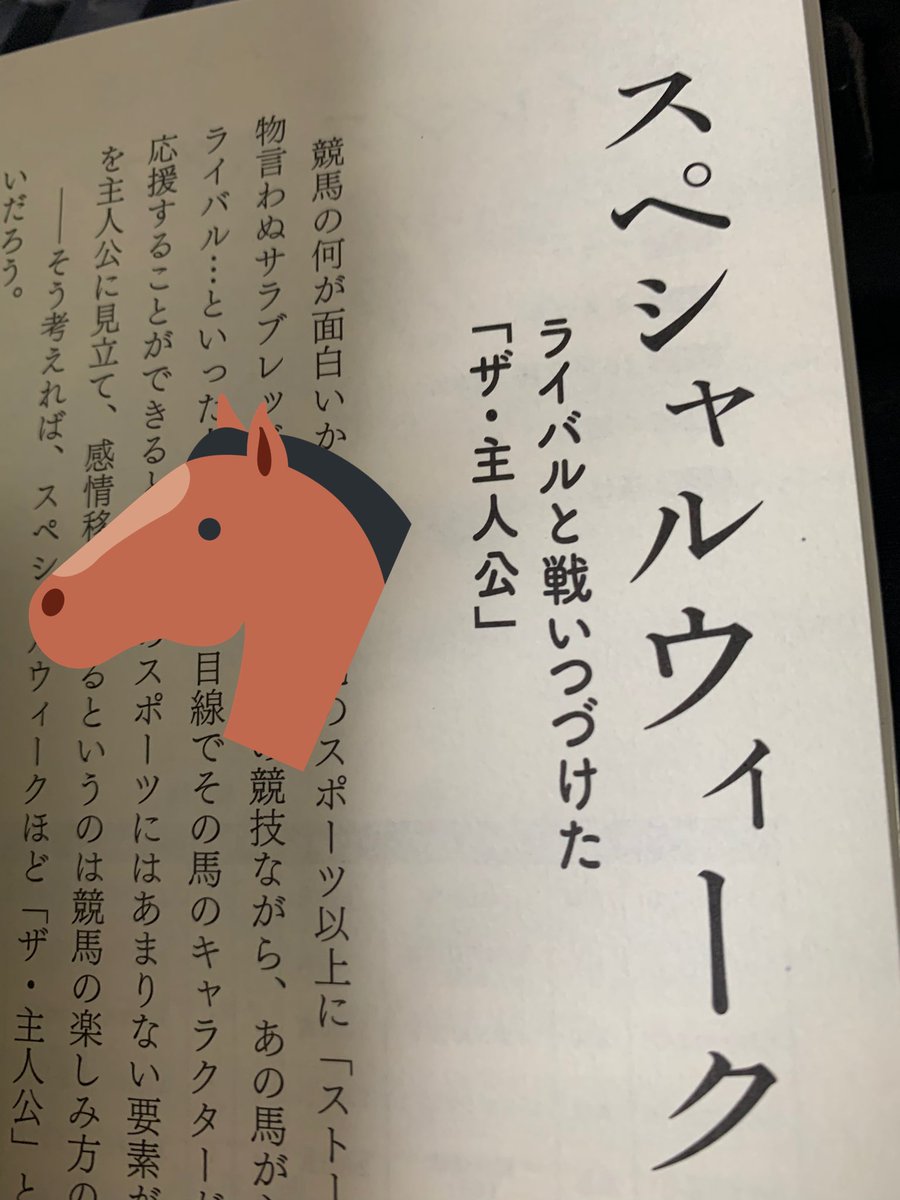 スペシャルウィーク
ライバルと戦いつづけた
「ザ・主人公」
競馬の何が面白いか
のスポーツ以上に「ストー
物言わぬサラブレッ
競技ながら、あの馬が
ライバル…といった
目線でその馬のキャラクター
応援することができる
スポーツにはあまりない要素が
を主人公に見立て、感情移
るというのは競馬の楽しみ方の
――そう考えれば、スペシ
ルウィークほど「ザ・主人公」と
いだろう。